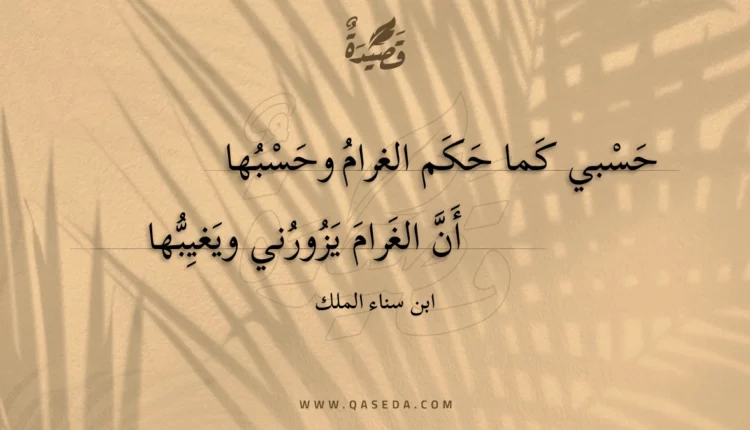 قَصِيدَةٌ
حَسْبي كَما حَكَم الغرامُ وحَسْبُها
أَنَّ الغَرامَ يَزُورُني ويَغيِبُّها
ابن سناء الملك
WWW.QASEDA.COM